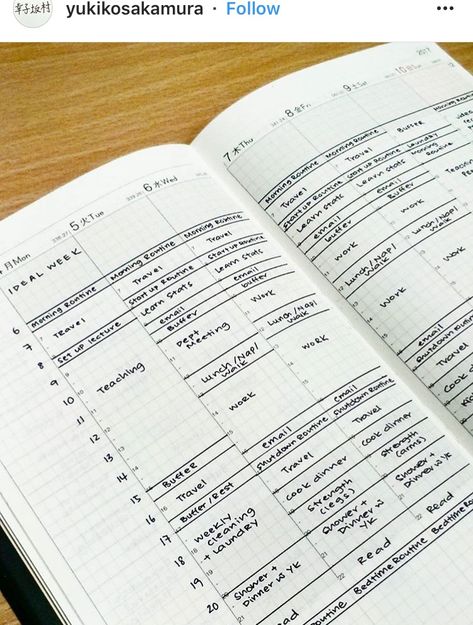 章子坂村
yukikosakamura · Follow
月Mon
IDEAL WEEK
6
7
8
9
10
11
12
13
14
15
16
17
18
19
20
Morning Routine
Travel
Set up lecture
Teaching
Buffer
Travel
Buffer/Rest
Weekly
Cleaning
+ Laundry
Shower +
Dinner w YK
Read
5 火Tue
Morning Routine
Travel
Start up Routine
Learn Stats
email
Buffer
Dept
Meeting
Lunch/Nap/
Walk
Work
email
Shutdown Routine
Travel
Cook dinner
Strength
(legs)
Shower +
Dinner w
YK
Read
Bedtime Routine
6 水Wed
Morning Routine
Travel
Start up Routine
Learn Stats
email
Buffer
Work
Lunch/Nap/
Walk
Work
email
Shutdown Routine
Travel
Cook dinner
Strength
(arms)
Shower +
Dinner w YK
Read
Bedtime Routine
7 木Thu
Morning Routine
Travel
Start up Routine
Learn Stats
email
buffer
Work
Lunch/Nap/
Walk
Work
email
Shutdown Routine
Travel
Cook d
8 金Fri
Morning Routine
Travel
Start up Routine
Learn Stats
email
Buffer
Work
Lunch/Nap/
Walk
Work
9 土Sat
Buffer
Laundry
Morning
Routine
10 日Sun
Morning Routine
2017